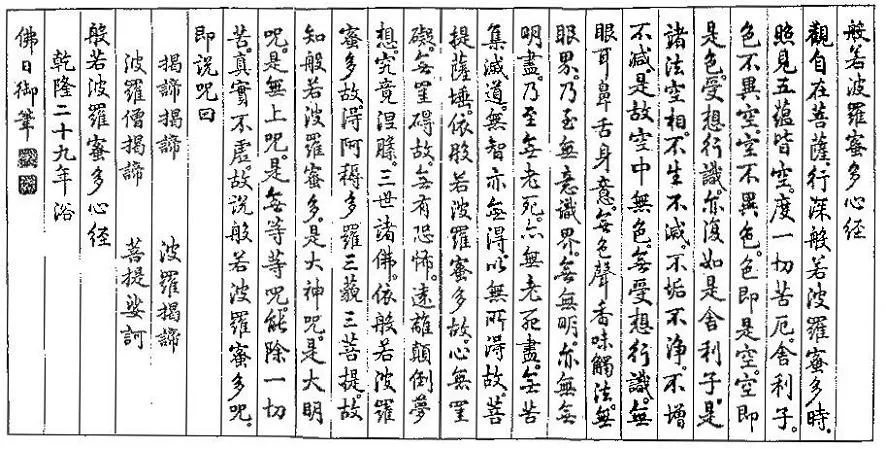 般若波羅蜜多心经
觀自在菩薩。行深般若波羅蜜多時。
照見五蕴皆空。度一切苦厄。舍利子。
色不異空。空不異色。色即是空。空即
是色。受想行識。亦復如是。舍利子。是
諸法空相。不生不滅。不垢不浄。不增
不減。是故空中無色。無受想行識。無
眼耳鼻舌身意。無色聲香味觸法。無
眼界。乃至無意識界。無無明。亦無無
明盡。乃至無老死。亦無老死盡。無苦
集滅道。無智亦無得。以無所得故。菩
提薩埵。依般若波羅蜜多故。心無罣
礙。無罣碍故。無有恐怖。遠離顛倒夢
想。究竟涅槃。三世諸佛。依般若波羅
蜜多故。得阿耨多羅三藐三菩提。故
知般若波羅蜜多。是大神咒。是大明
咒。是無上咒。是無等等咒。能除一切
苦。真實不虛。故說般若波羅蜜多咒。
即說咒曰
揭諦揭諦 波羅揭諦
波羅僧揭諦 菩提娑訶
般若波羅蜜多心经
乾隆二十九年浴
佛日御筆